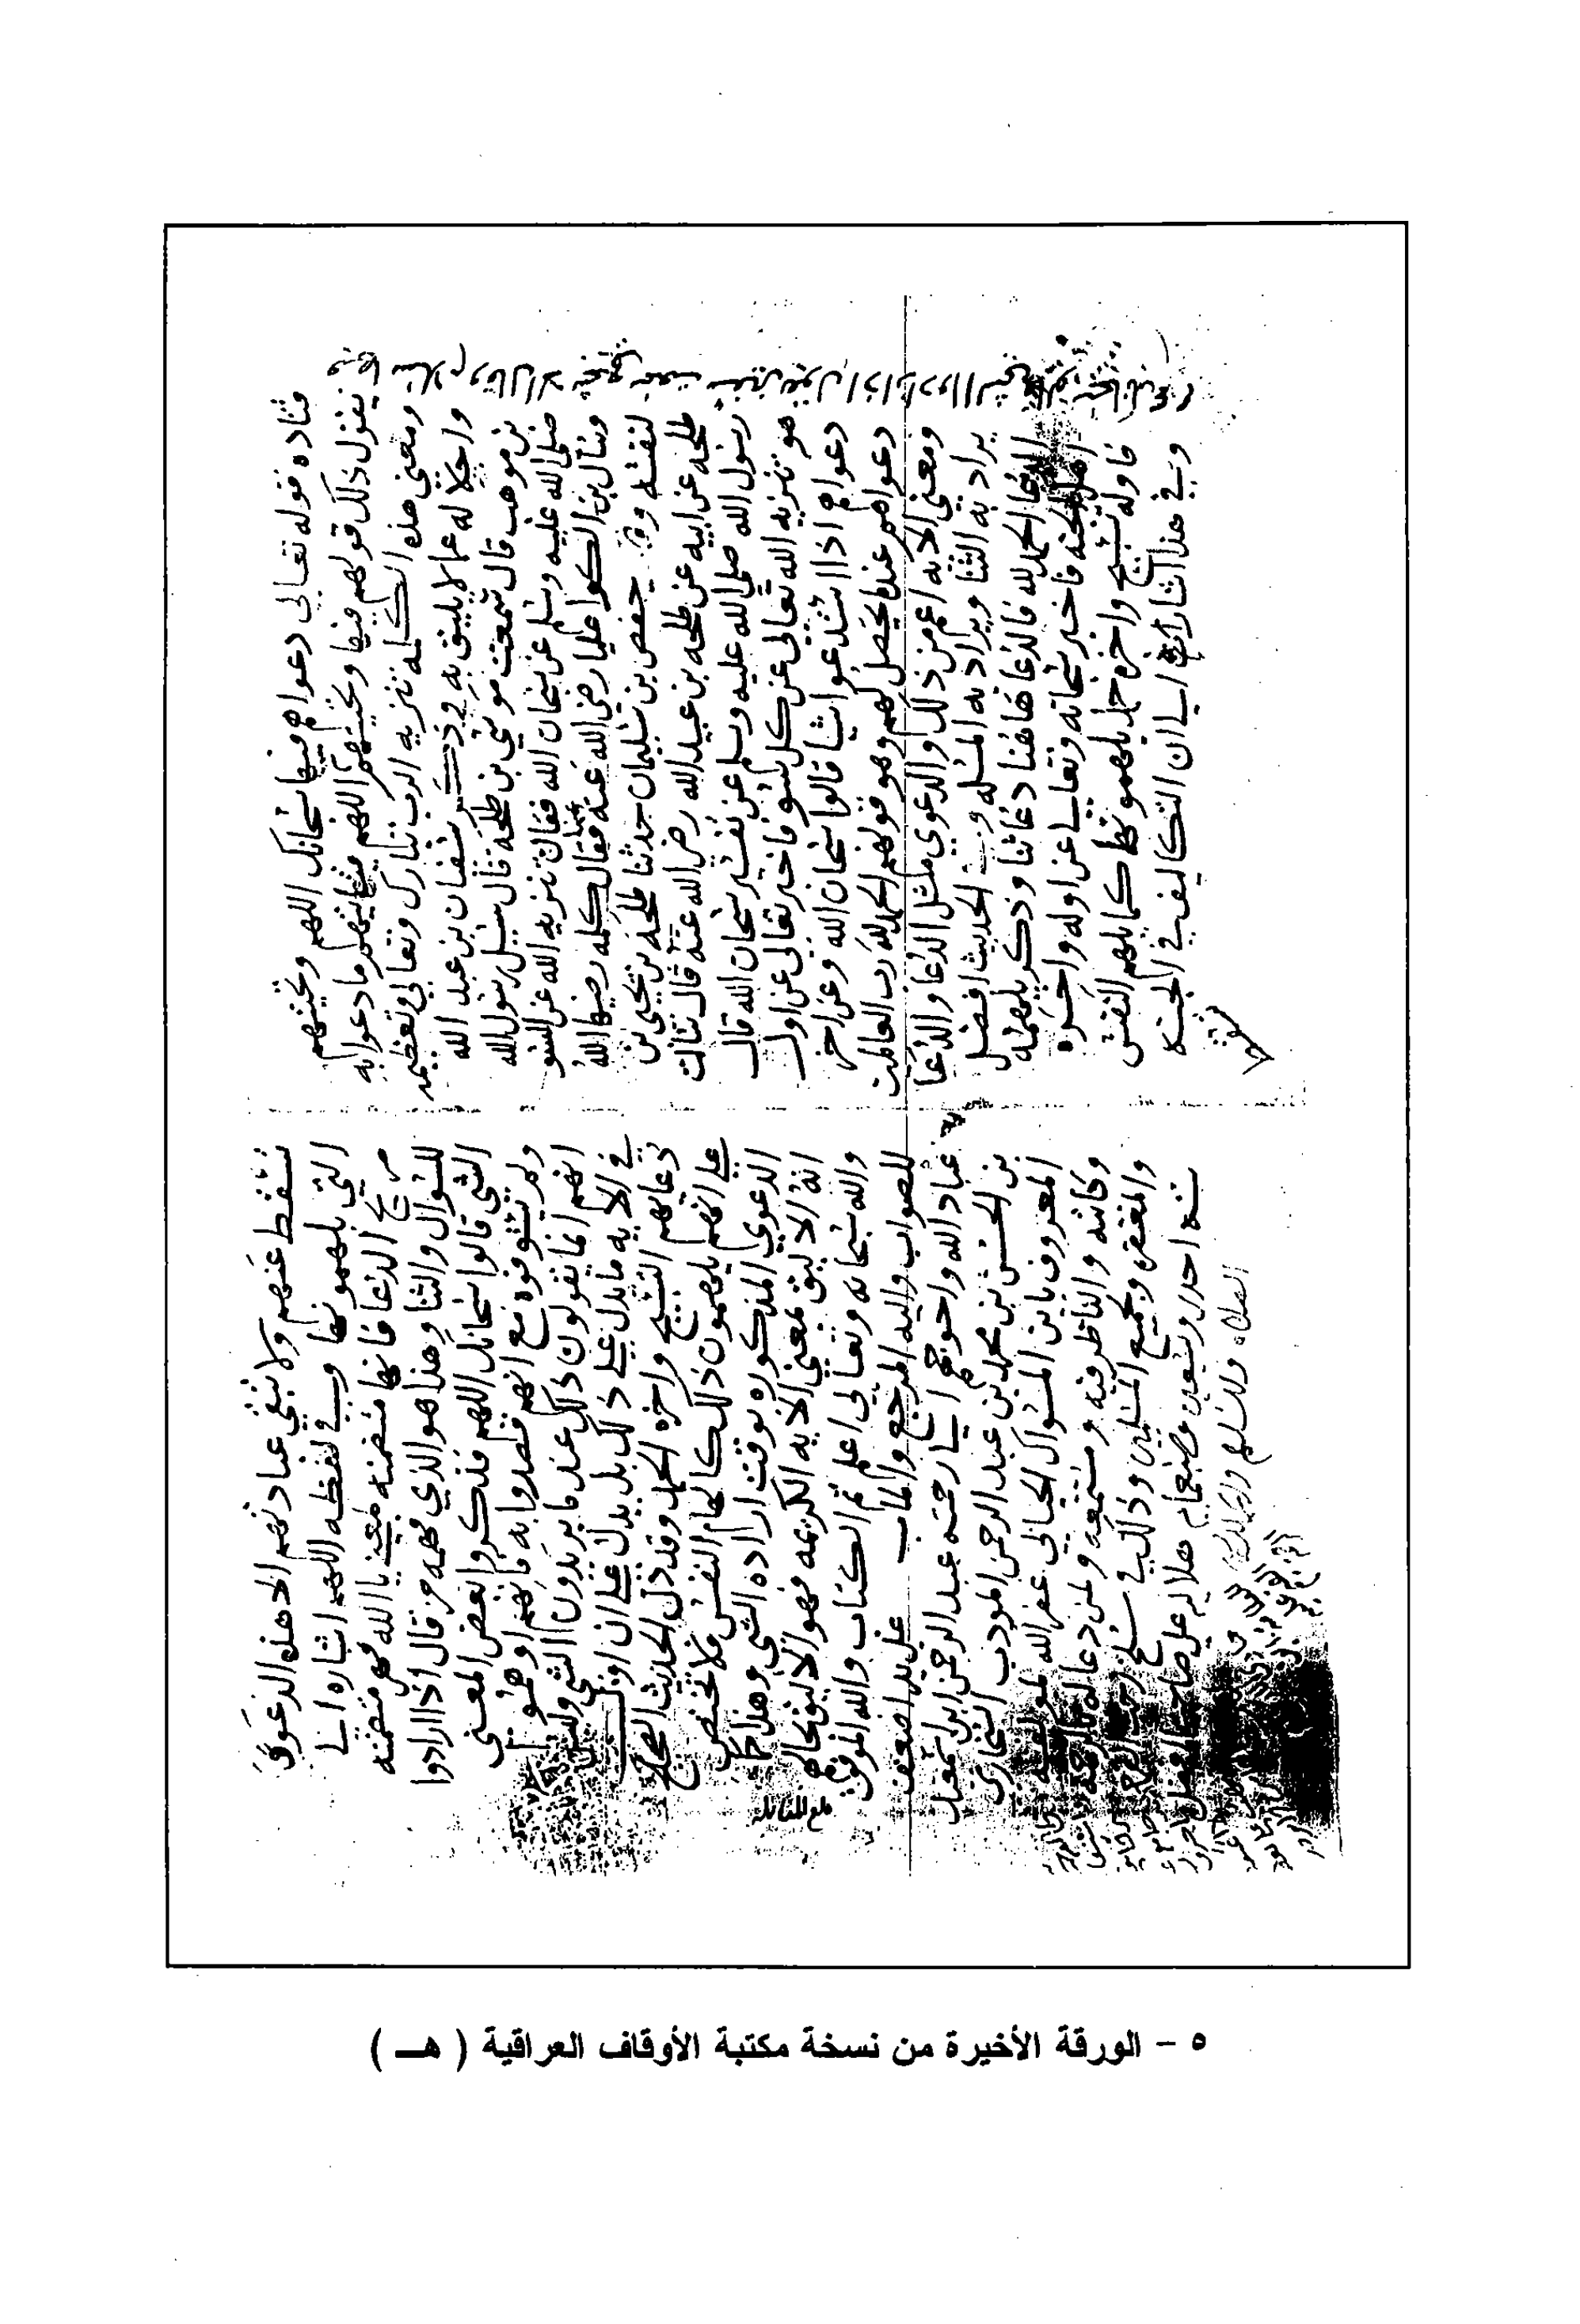 قتاده قوله تعالى دعواهم فيها سبحانك اللهم وتحيتهم
يقول ذلك قولهم فيها وتحيتهم اللهم ما دعوا به
ومعنى هذه الكلمه تنزيه الرب تبارك وتعالى وتعظيمه
واجلاله عما لا يليق به وذكر سفيان بن عبد الله
بن موهب قال سمعت موسى بن طلحه قال سئل رسول الله
صلى الله عليه وسلم عن سبحان الله فقال تنزيه الله عن السو
وسأل بن الكوا عليا رضي الله عنه فقال كلمه رضيها الله
لنفسه حفص بن سليمان حدثنا طلحه بن يحيى بن
طلحه عن ابيه عن طلحه بن عبيد الله رضي الله عنه قال سالت
رسول الله صلى الله عليه وسلم عن تفسير سبحان الله قال
هو تنزيه الله تعالى عن كل سو فاخبر تعالى عن اول
دعواهم اذا استدعوا شيا قالوا سبحان الله وعن اخر
دعواهم عندما يحصل لهم وهو قولهم الحمد لله رب العالمين
ومعنى الايه اعم من ذلك والدعوى مثل الدعا والدعا
يراد به الثنا ويراد به المسله وفي الحديث افضل
الدعا الحمد لله فالدعا هاهنا دعا ثنا وذكر يلهمه
اهل الجنه فاخبر سبحانه وتعالى عن اوله واخره
فاوله تسبيح واخره حمد يلهمونهما كما يلهم النفس
وفي هذا اشاره الى ان التكاليف في الجنه
تسقط عنهم ولا تبقى عبادتهم الا هذه الدعوى
التي يلهمونها وفي لفظه اللهم اشاره الى
صريح الدعا فانها متضمنه معنى يا الله فهي متضمنه
للسوال والثنا وهذا هو الذي فهمه من قال اذا ارادوا
الشي قالوا سبحانك اللهم فذكروا بعض المعنى
ولم يستوفوه مع انهم قصدوا به فانهم اوهموا
انهم انما يقولون ذلك عندما يريدون الشي وليس
في الايه ما يدل على ذلك بل يدل على ان اول
دعايهم التسبيح واخره الحمد وقد دل الحديث الصحيح
على انهم يلهمون ذلك كالهام النفس فلا تختص
الدعوى المذكوره بوقت اراده الشي وهذا كما
انه لا يليق بمعنى الايه الكريمه فهو لا يليق بحالهم
والله سبحانه وتعالى اعلم تم الكتاب والله الموفق
للصواب واليه المرجع والماب على يد اضعف
عباد الله واحوجهم الى رحمته عبد الرحمن ابن اسمعيل
بن الحسن بن محمد بن عبد الرحمن المودب
المعروف باين المسواك الحبالي غفر الله لمولفه
وكاتبه والناظر فيه ومستمعه ولمن دعا له بالرحمه
والمغفره ولجميع المسلمين وذلك في سلخ رجب
سنه احدى وتسعين وسبعمايه هلاليه على صاحبها افضل
الصلاه والتسليم
بلغ المقابله
٥ - الورقة الأخيرة من نسخة مكتبة الأوقاف العراقية ( هـ )